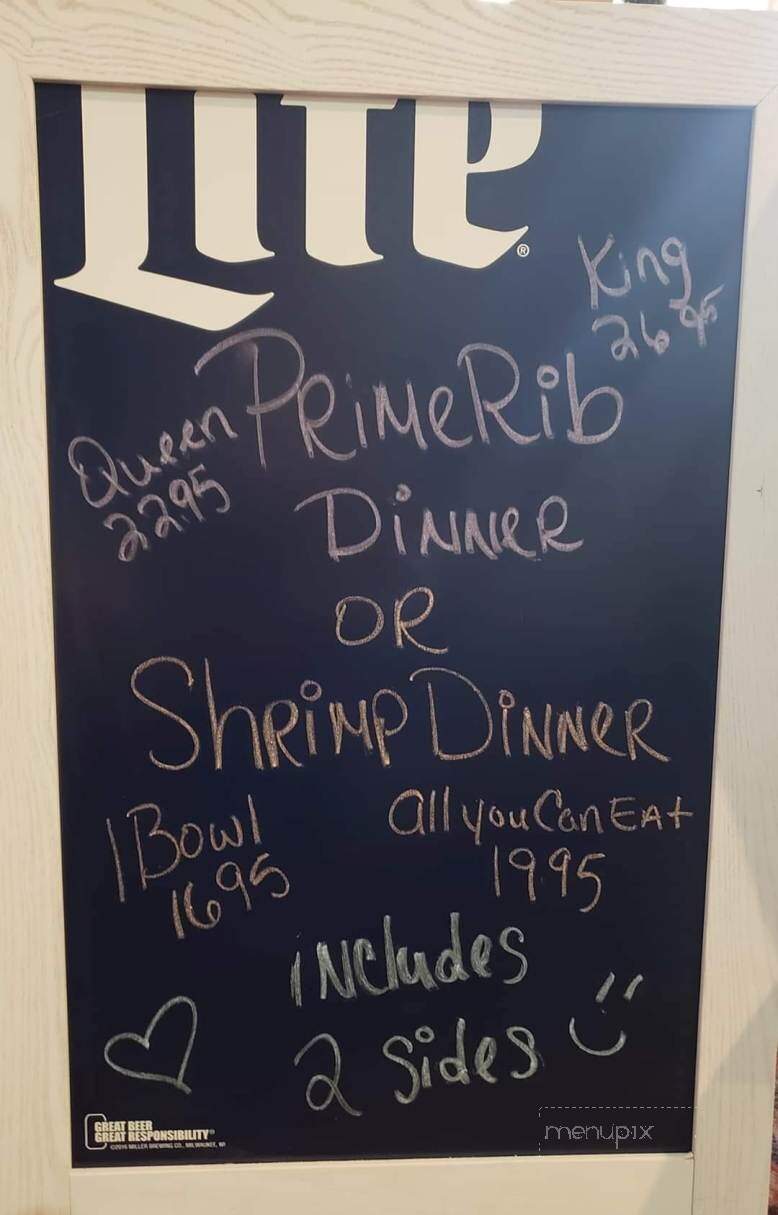 Lite®
King
26 95
Queen
22.95
PRiMe Rib
DiNNeR
OR
ShRiMp DiNNeR
1 Bowl
16 95
all you Can EAt
19.95
iNcludes
2 sides
GREAT BEER
GREAT RESPONSIBILITY®
©2016 MILLER BREWING CO., MILWAUKEE, WI
menupix